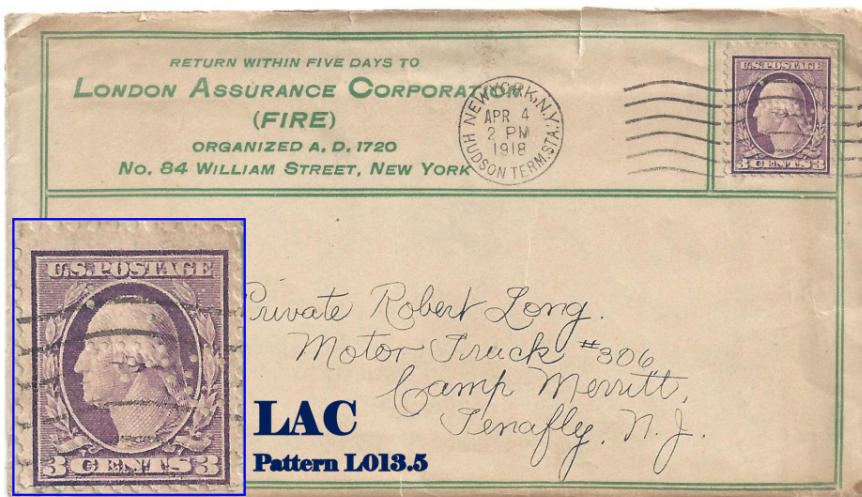 RETURN WITHIN FIVE DAYS TO
LONDON ASSURANCE CORPORATION
(FIRE)
ORGANIZED A. D. 1720
No. 84 WILLIAM STREET, NEW YORK
NEW YORK, N.Y.
APR 4
2 PM
1918
HUDSON TERM. STA.
U.S. POSTAGE
3 CENTS 3
U.S. POSTAGE
3 CENTS 3
Private Robert Long.
Motor Truck #306
Camp Merritt,
Tenafly, N. J.
LAC
Pattern L013.5